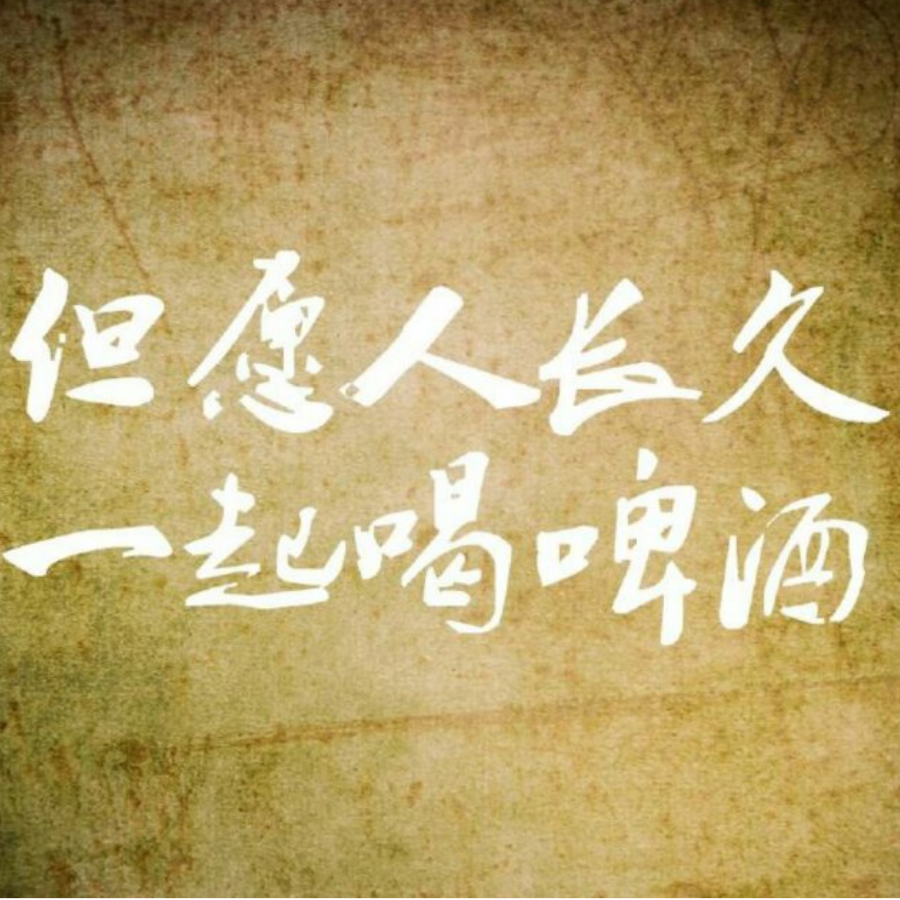 但愿人长久
一起喝啤酒